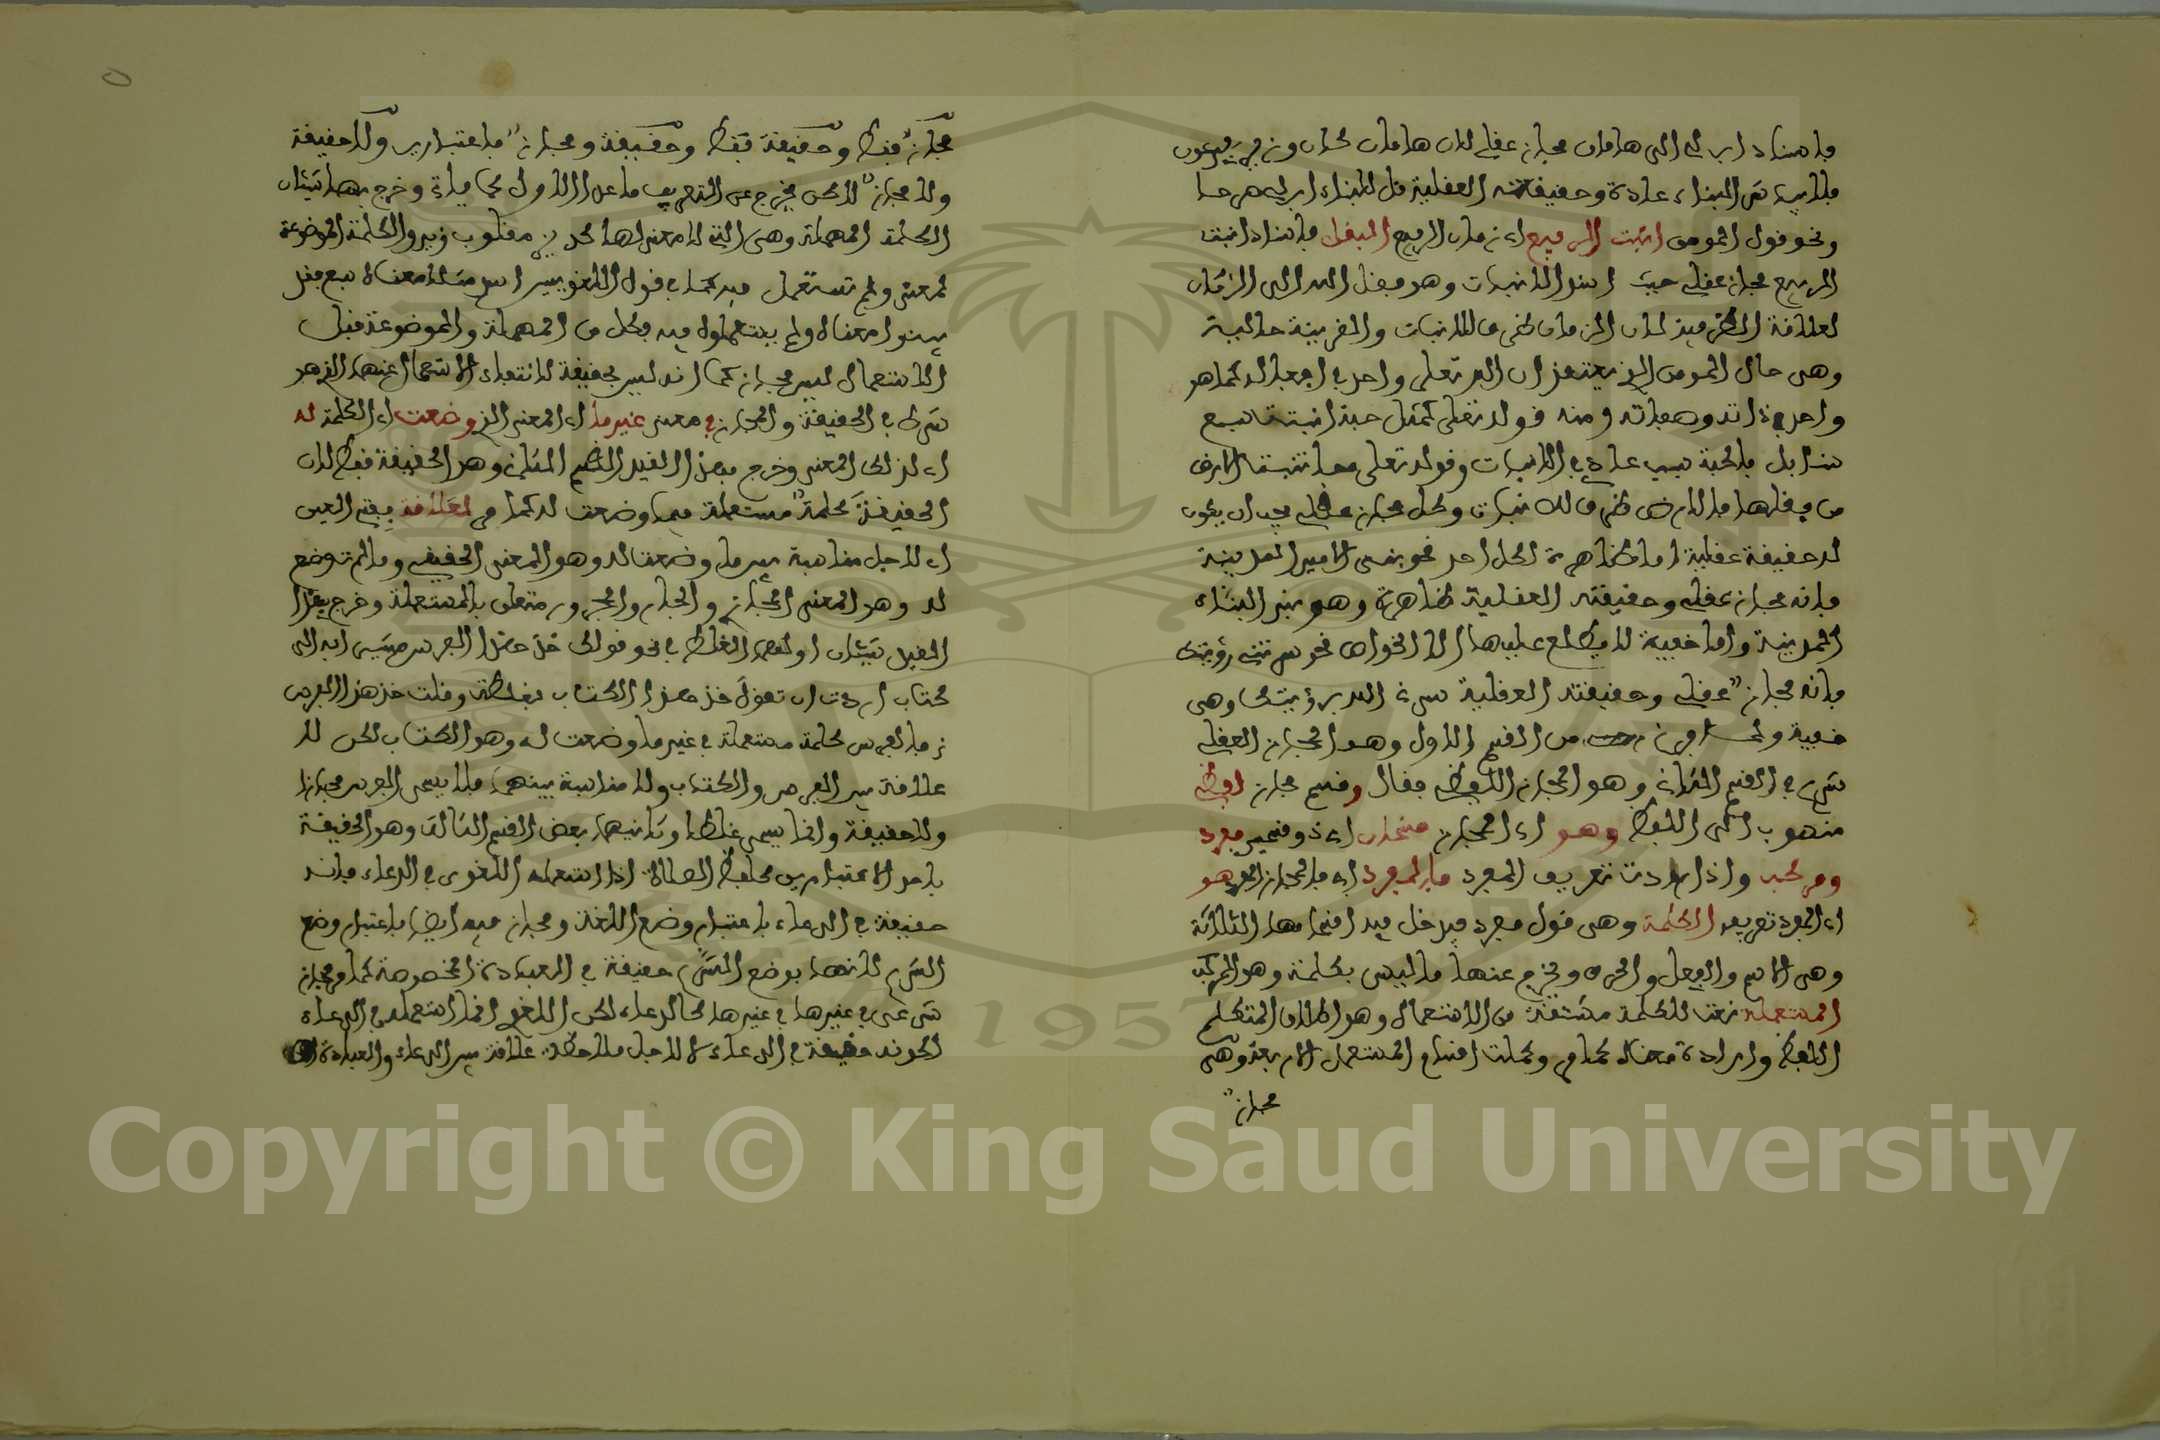 فإسناد ابن لي إلى هامان مجاز عقلي لان هامان كان وزير فرعون
ونحو قول المومن انبت الربيع اي زمان الربيع البقل فإسناد انبت
الربيع مجاز عقلي حيث اسند الانبات وهو فعل الله الى الزمان
لعلاقة الظرفية لان الزمان ظرف للانبات والقرينة حالية
وهي حال المومن الذي يعتقد ان الله تعلى واحد في افعاله كما هو
واحد في ذاته وصفاته ومنه قوله تعلى كمثل حبة انبتت سبع
سنابل فالحبة سبب عادي في الانبات وقوله تعلى مما تنبت الارض
من بقلها فالارض ظرف للنبات وكل مجاز عقلي يجب ان يكون
له حقيقة عقلية اما ظاهرة لكل احد نحو بنى الامير المدينة
فإنه مجاز عقلي وحقيقته العقلية ظاهرة وهو بنى البناء
المدينة واما خفية لا يطلع عليها الا الخواص نحو سرتني رؤيتك
فإنه مجاز عقلي وحقيقته العقلية سرني الله برؤيتك وهي
خفية ولما فرغ من القسم الاول وهو المجاز العقلي
شرع في القسم الثاني وهو المجاز اللفظي فقال وقسم مجاز لفظي
منسوب الى اللفظ وهو اي المجاز قسمان اي ذو قسمين مفرد
ومركب واذا اردت تعريف المفرد فالمفرد اي فالمجاز المفرد هو
اي المفرد تعريفه الكلمة وهي قول مفرد فيدخل فيه اقسامها الثلاثة
وهي الاسم والفعل والحرف ويخرج عنها ما ليس بكلمة وهو المركب
المستعملة نعت للكلمة مشتقة من الاستعمال وهو اطلاق المتكلم
اللفظ وارادة معناه كما مر وكملت اقسام المستعمل الاربعة وهي
مجاز
مجاز فقط وحقيقة فقط وحقيقة ومجاز باعتبارين ولا حقيقة
ولا مجاز لاكن يخرج عن التعريف ما عدا الاول كما ياتي وخرج بها شيئان
الكلمة المهملة وهي التي لا معنى لها كديز مقلوب زيد والكلمة الموضوعة
لمعنى ولم تستعمل فيه كما في قول اللغويين اسد مثلا معناه سبع فقد
بينوا معناه ولم يستعملوه فيه فكل من المهملة والموضوعة قبل
الاستعمال ليس مجاز كما انه ليس بحقيقة لانتفاء الاستعمال عنهما الذي هو
شرط في الحقيقة والمجاز في معنى غير ما اي المعنى الذي وضعت اي الكلمة له
اي لذلك المعنى وخرج بهذا القيد القسم الثاني وهو الحقيقة فقط لان
الحقيقة كلمة مستعملة فيما وضعت له كما مر لعلاقة بفتح العين
اي لاجل مناسبة بين ما وضعت له وهو المعنى الحقيقي وما لم توضع
له وهو المعنى المجازي والجار والمجرور متعلق بالمستعملة وخرج بهذا
القيد شيئان اولهما الغلط في نحو قولك خذ هذا الفرس مشيرا به الى
كتاب اردت ان تقول خذ هذا الكتاب فغلطت وقلت خذ هذا الفرس
فالفرس كلمة مستعملة في غير ما وضعت له وهو الكتاب لكن لا
علاقة بين الفرس والكتاب ولا مناسبة بينهما فلا يسمى الفرس مجازا
ولا حقيقة وانما يسمى غلطا وثانيهما بعض القسم الثالث وهو الحقيقة
باحد الاعتبارين كلفظ الصلاة اذا استعمله اللغوي في الدعاء فإنه
حقيقة في الدعاء باعتبار وضع اللغة ومجاز فيه ايضا باعتبار وضع
الشرع لانها بوضع الشرع حقيقة في العبادة المخصوصة كما مر مجاز
شرعي في غيرها كالدعاء لكن اللغوي انما استعمله في الدعاء
لكونه حقيقة في الدعاء لا لاجل ملاحظة علاقة بين الدعاء والعبادة
Copyright © King Saud University
1957